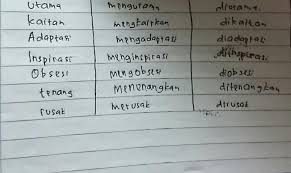 Utama mengutama diutama
Kaitan mengkaitkan dikaitkan
Adaptasi mengadaptasi diadaptasi
Inspirasi menginspirasi diinspirasi
Obsesi mengobsesi diobsesi
tenang menenangkan ditenangkan
rusak merusak dirusak